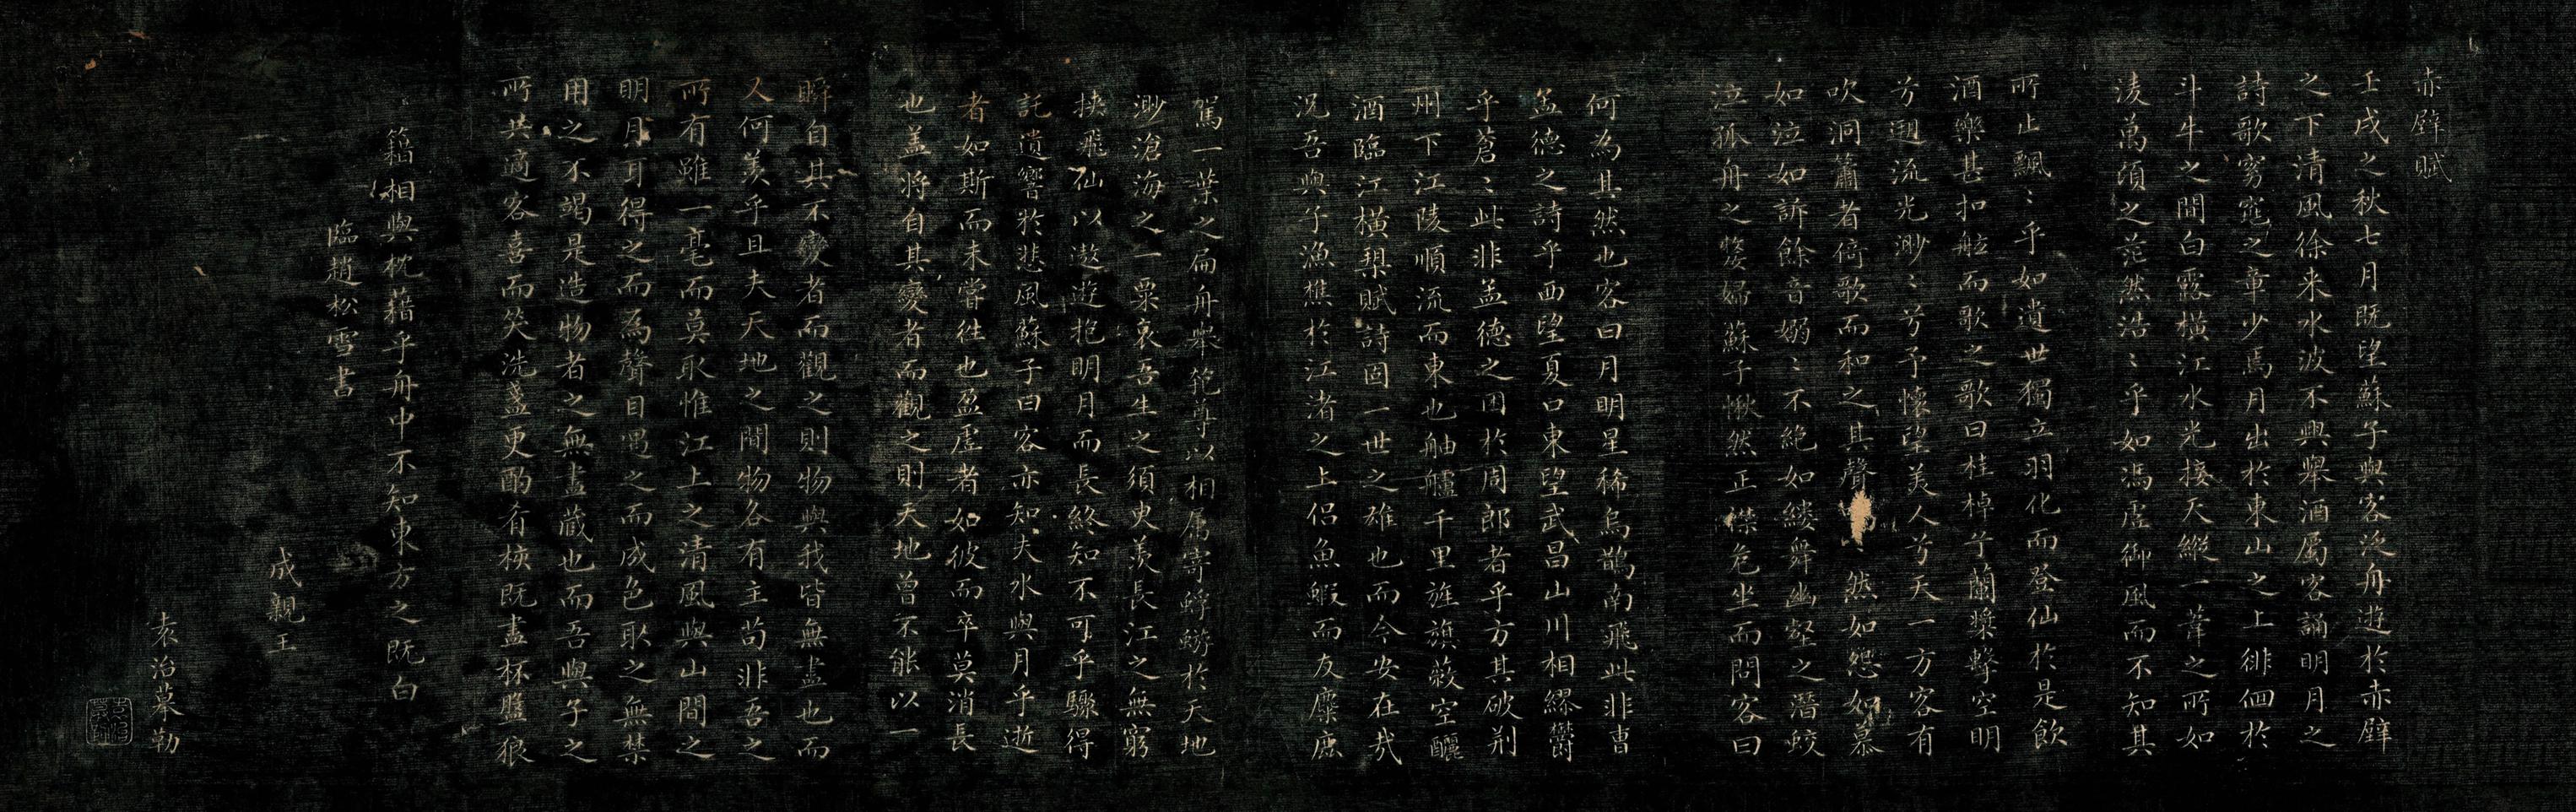 赤壁賦
壬戌之秋七月既望蘇子與客泛舟遊於赤壁
之下清風徐来水波不興舉酒屬客誦明月之
詩歌窈窕之章少焉月出於東山之上徘徊於
斗牛之間白露橫江水光接天縱一葦之所如
淩萬頃之茫然浩〻乎如馮虛御風而不知其
所止飄〻乎如遺世獨立羽化而登仙於是飲
酒樂甚扣舷而歌之歌曰桂棹兮蘭槳擊空明
兮遡流光渺〻兮予懷望美人兮天一方客有
吹洞簫者倚歌而和之其聲然如怨如慕
如泣如訴餘音嫋〻不絕如縷舞幽壑之潛蛟
泣孤舟之嫠婦蘇子愀然正襟危坐而問客曰
何為其然也客曰月明星稀烏鵲南飛此非曹
孟德之詩乎西望夏口東望武昌山川相繆鬱
乎蒼〻此非孟德之困於周郎者乎方其破荆
州下江陵順流而東也舳艫千里旌旗蔽空釃
酒臨江橫槊賦詩固一世之雄也而今安在哉
況吾與子漁樵於江渚之上侶魚蝦而友麋鹿
駕一葉之扁舟舉匏尊以相屬寄蜉蝣於天地
渺滄海之一粟哀吾生之須臾羡長江之無窮
挾飛仙以遨遊抱明月而長終知不可乎驟得
託遺響於悲風蘇子曰客亦知夫水與月乎逝
者如斯而未嘗往也盈虛者如彼而卒莫消長
也盖将自其變者而觀之則天地曾不能以一
瞬自其不變者而觀之則物與我皆無盡也而
又何羡乎且夫天地之間物各有主苟非吾之
所有雖一毫而莫取惟江上之清風與山間之
明月耳得之而為聲目遇之而成色取之無禁
用之不竭是造物者之無盡藏也而吾與子之
所共適客喜而笑洗盞更酌肴核既盡杯盤狼
籍相與枕藉乎舟中不知東方之既白
臨趙松雪書
成親王
袁治摹勒